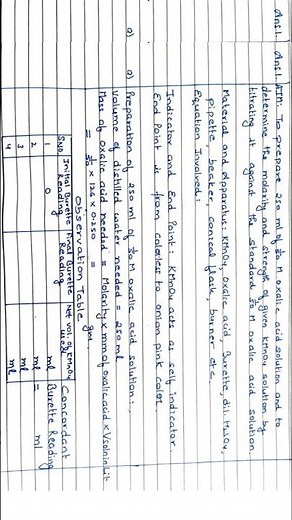 Ans1. Ans1. AIM: To prepare 250 ml of 1/50 M oxalic acid solution and to
determine the molarity and strength of given KMnO4 solution by
titrating it against the standard 1/50 M oxalic acid solution.
Material and Apparatus: KMnO4, oxalic acid Burette, dil. H2SO4,
pipette, beaker, conical flask, burner etc.
Equation Involved:
Indicator and End Point: KMnO4 acts as self indicator.
End Point is from colorless to onion pink color.
a) a) Preparation of 250 ml of 1/50 M oxalic acid solution:
Volume of distilled water needed = 250 ml
Mass of oxalic acid needed = Molarity x mm of oxalic acid x Vsoln in Lit
= 1/50 x 126 x 0.250 = gm.
Observation Table
S.No. Initial Burette Reading Final Burette Reading Net vol. of KMnO4 used Concordant Burette Reading
1 0 ml = ml
2 ml
3 ml
4 ml